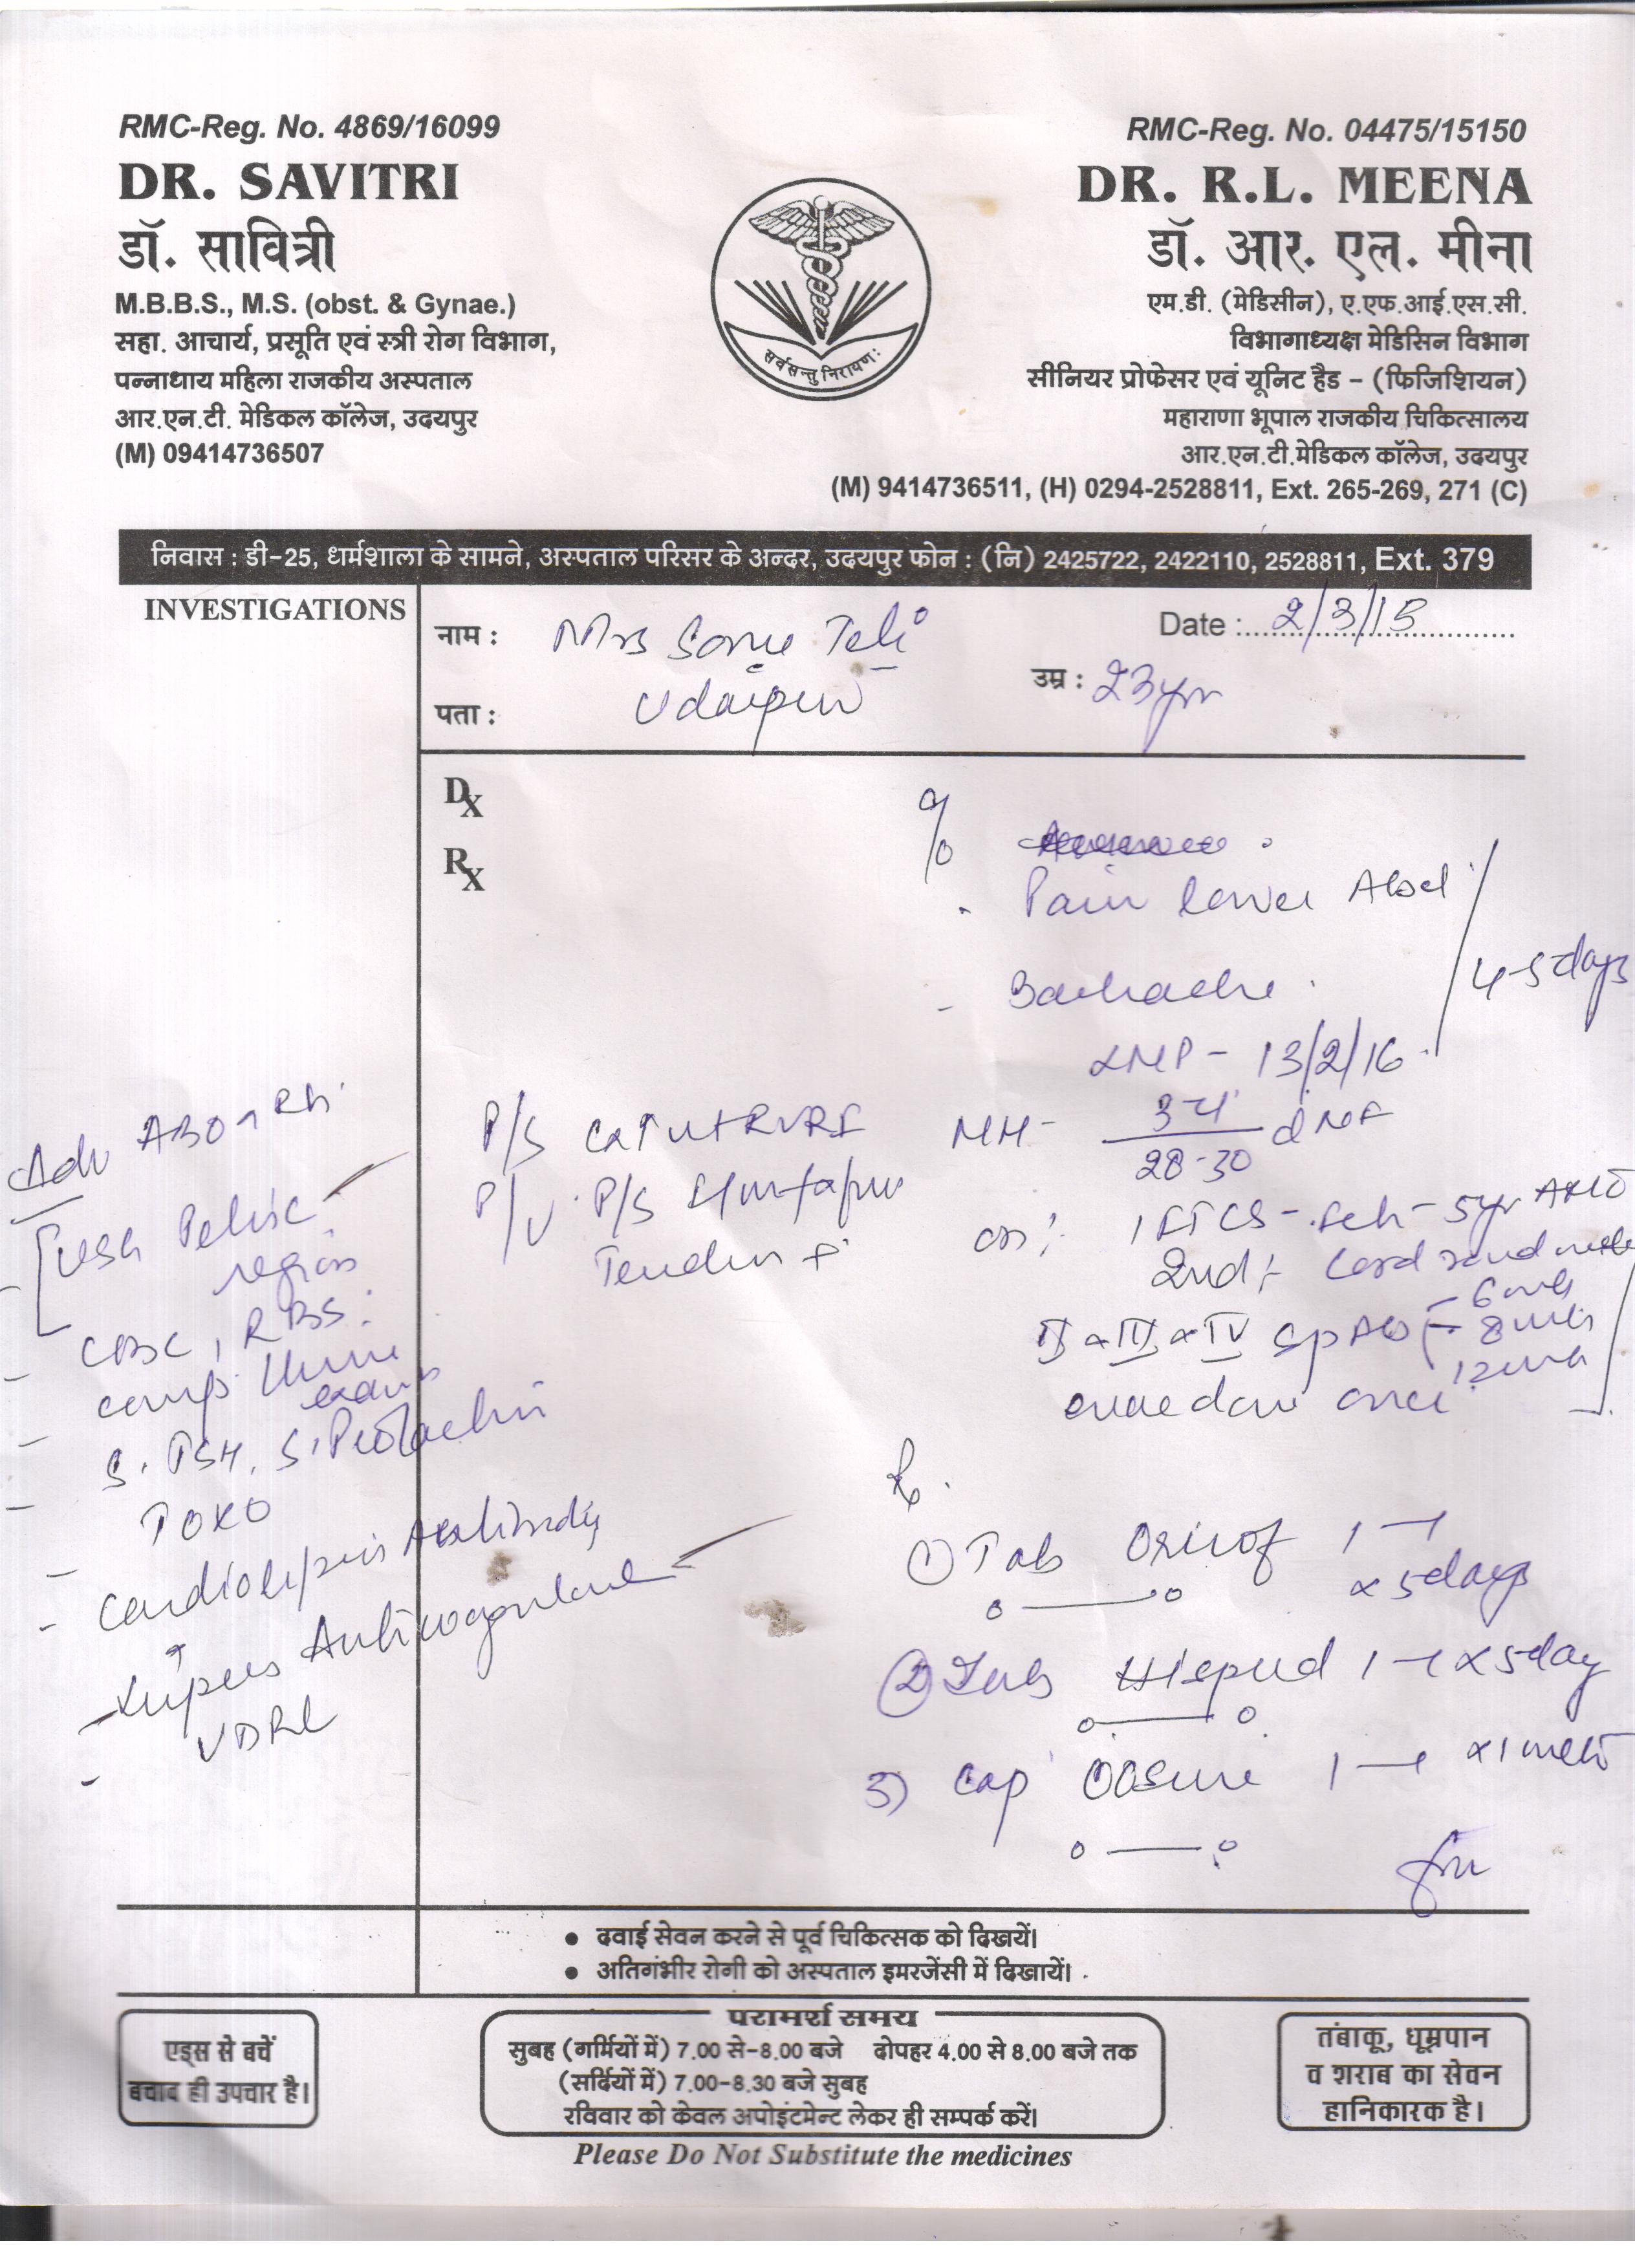 RMC-Reg. No. 4869/16099
DR. SAVITRI
डॉ. सावित्री
M.B.B.S., M.S. (obst. & Gynae.)
सहा. आचार्य, प्रसूति एवं स्त्री रोग विभाग,
पन्नाधाय महिला राजकीय अस्पताल
आर.एन.टी. मेडिकल कॉलेज, उदयपुर
(M) 09414736507
सर्वसन्तु निरायण:
RMC-Reg. No. 04475/15150
DR. R.L. MEENA
डॉ. आर. एल. मीना
एम.डी. (मेडिसीन), ए.एफ.आई.एस.सी.
विभागाध्यक्ष मेडिसिन विभाग
सीनियर प्रोफेसर एवं यूनिट हैड – (फिजिशियन)
महाराणा भूपाल राजकीय चिकित्सालय
आर.एन.टी.मेडिकल कॉलेज, उदयपुर
(M) 9414736511, (H) 0294-2528811, Ext. 265-269, 271 (C)
निवास : डी-25, धार्मशाला के सामने, अस्पताल परिसर के अन्दर, उदयपुर फोन : (नि) 2425722, 2422110, 2528811, Ext. 379
INVESTIGATIONS
नाम : Mrs Teli
Date : 2/3/15
उम्र : 23yr
पता : Udaipur
Dx
Rx
Pain lower Abd
- Backache
4-5 days
LMP - 13/2/16
MH- 3-4 / 28-30
1 FTCS - - 5yr
2nd
II III IV
6
8
12
once
P/S
P/V P/S
Adv ABO Rh
USG Pelvic
region
- CBC, RBS
- Comp. Urine
exam
- S. TSH, S. Prolactin
- TOXO
- Cardiolipin Antibody
- Lupus Anticoagulant
- VDRL
① Tab 1 – 1
x 5 days
② Tab 1 – 1 x 5 day
3) Cap 1 – 1 x 1
• दवाई सेवन करने से पूर्व चिकित्सक को दिखयें।
• अतिगंभीर रोगी को अस्पताल इमरजेंसी में दिखायें।
एड्स से बचें
बचाव ही उपचार है।
परामर्श समय
सुबह (गर्मियों में) 7.00 से-8.00 बजे दोपहर 4.00 से 8.00 बजे तक
(सर्दियों में) 7.00-8.30 बजे सुबह
रविवार को केवल अपोइंटमेन्ट लेकर ही सम्पर्क करें।
तंबाकू, धूम्रपान
व शराब का सेवन
हानिकारक है।
Please Do Not Substitute the medicines